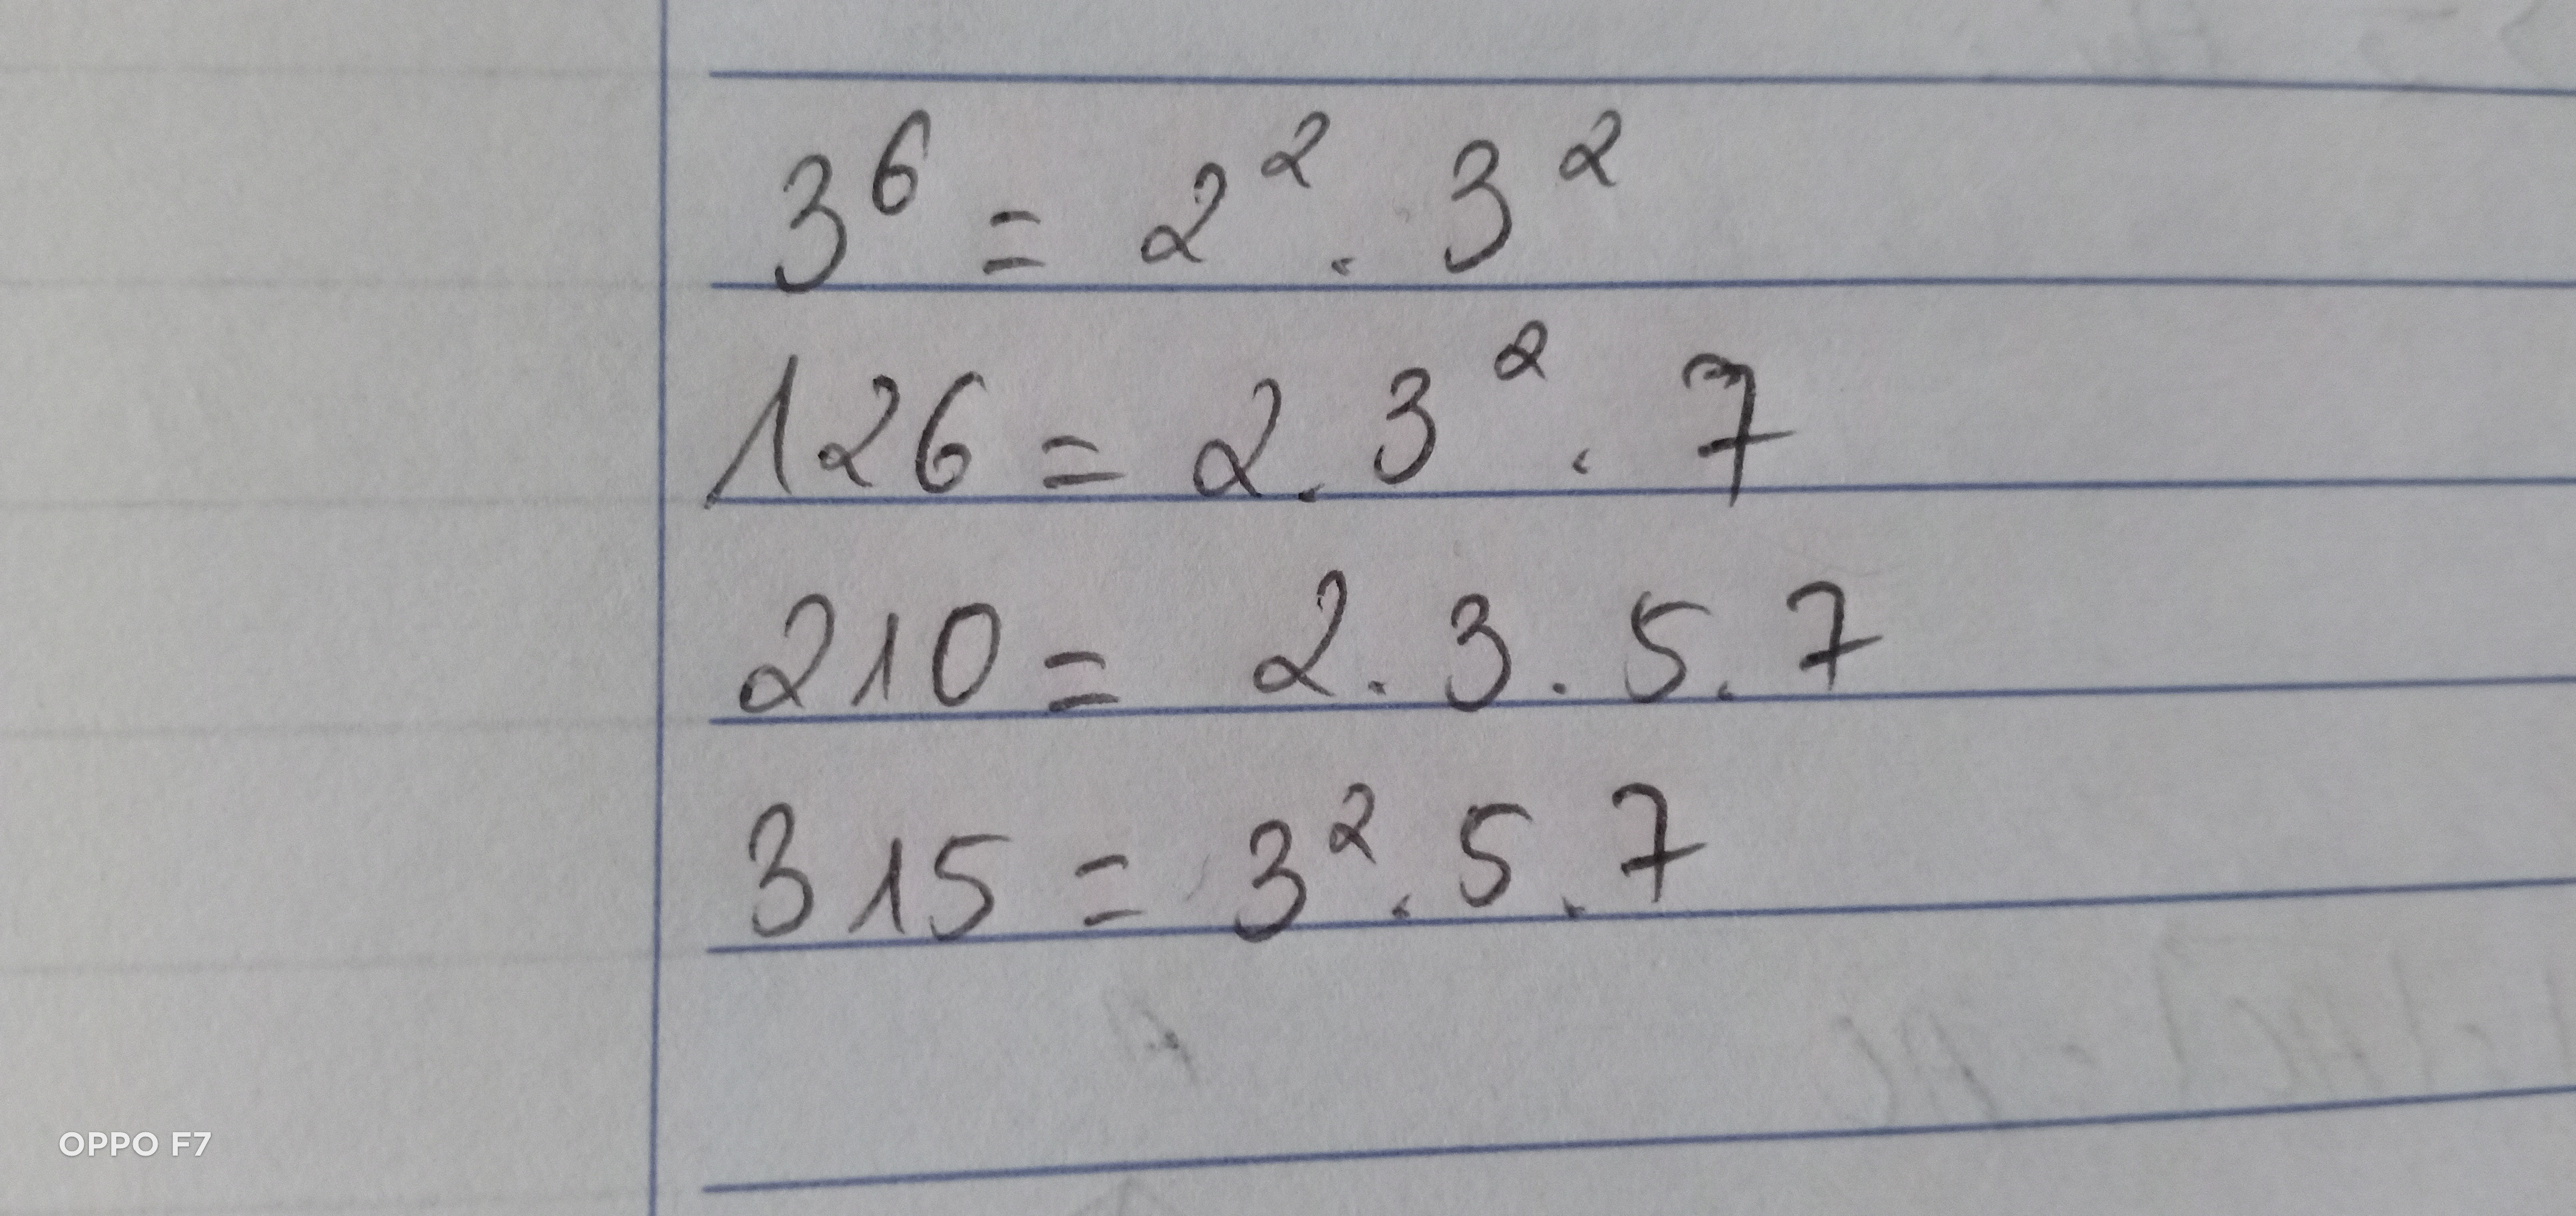 3⁶ = 2² . 3²
126 = 2 . 3² . 7
210 = 2 . 3 . 5 . 7
315 = 3² . 5 . 7
OPPO F7